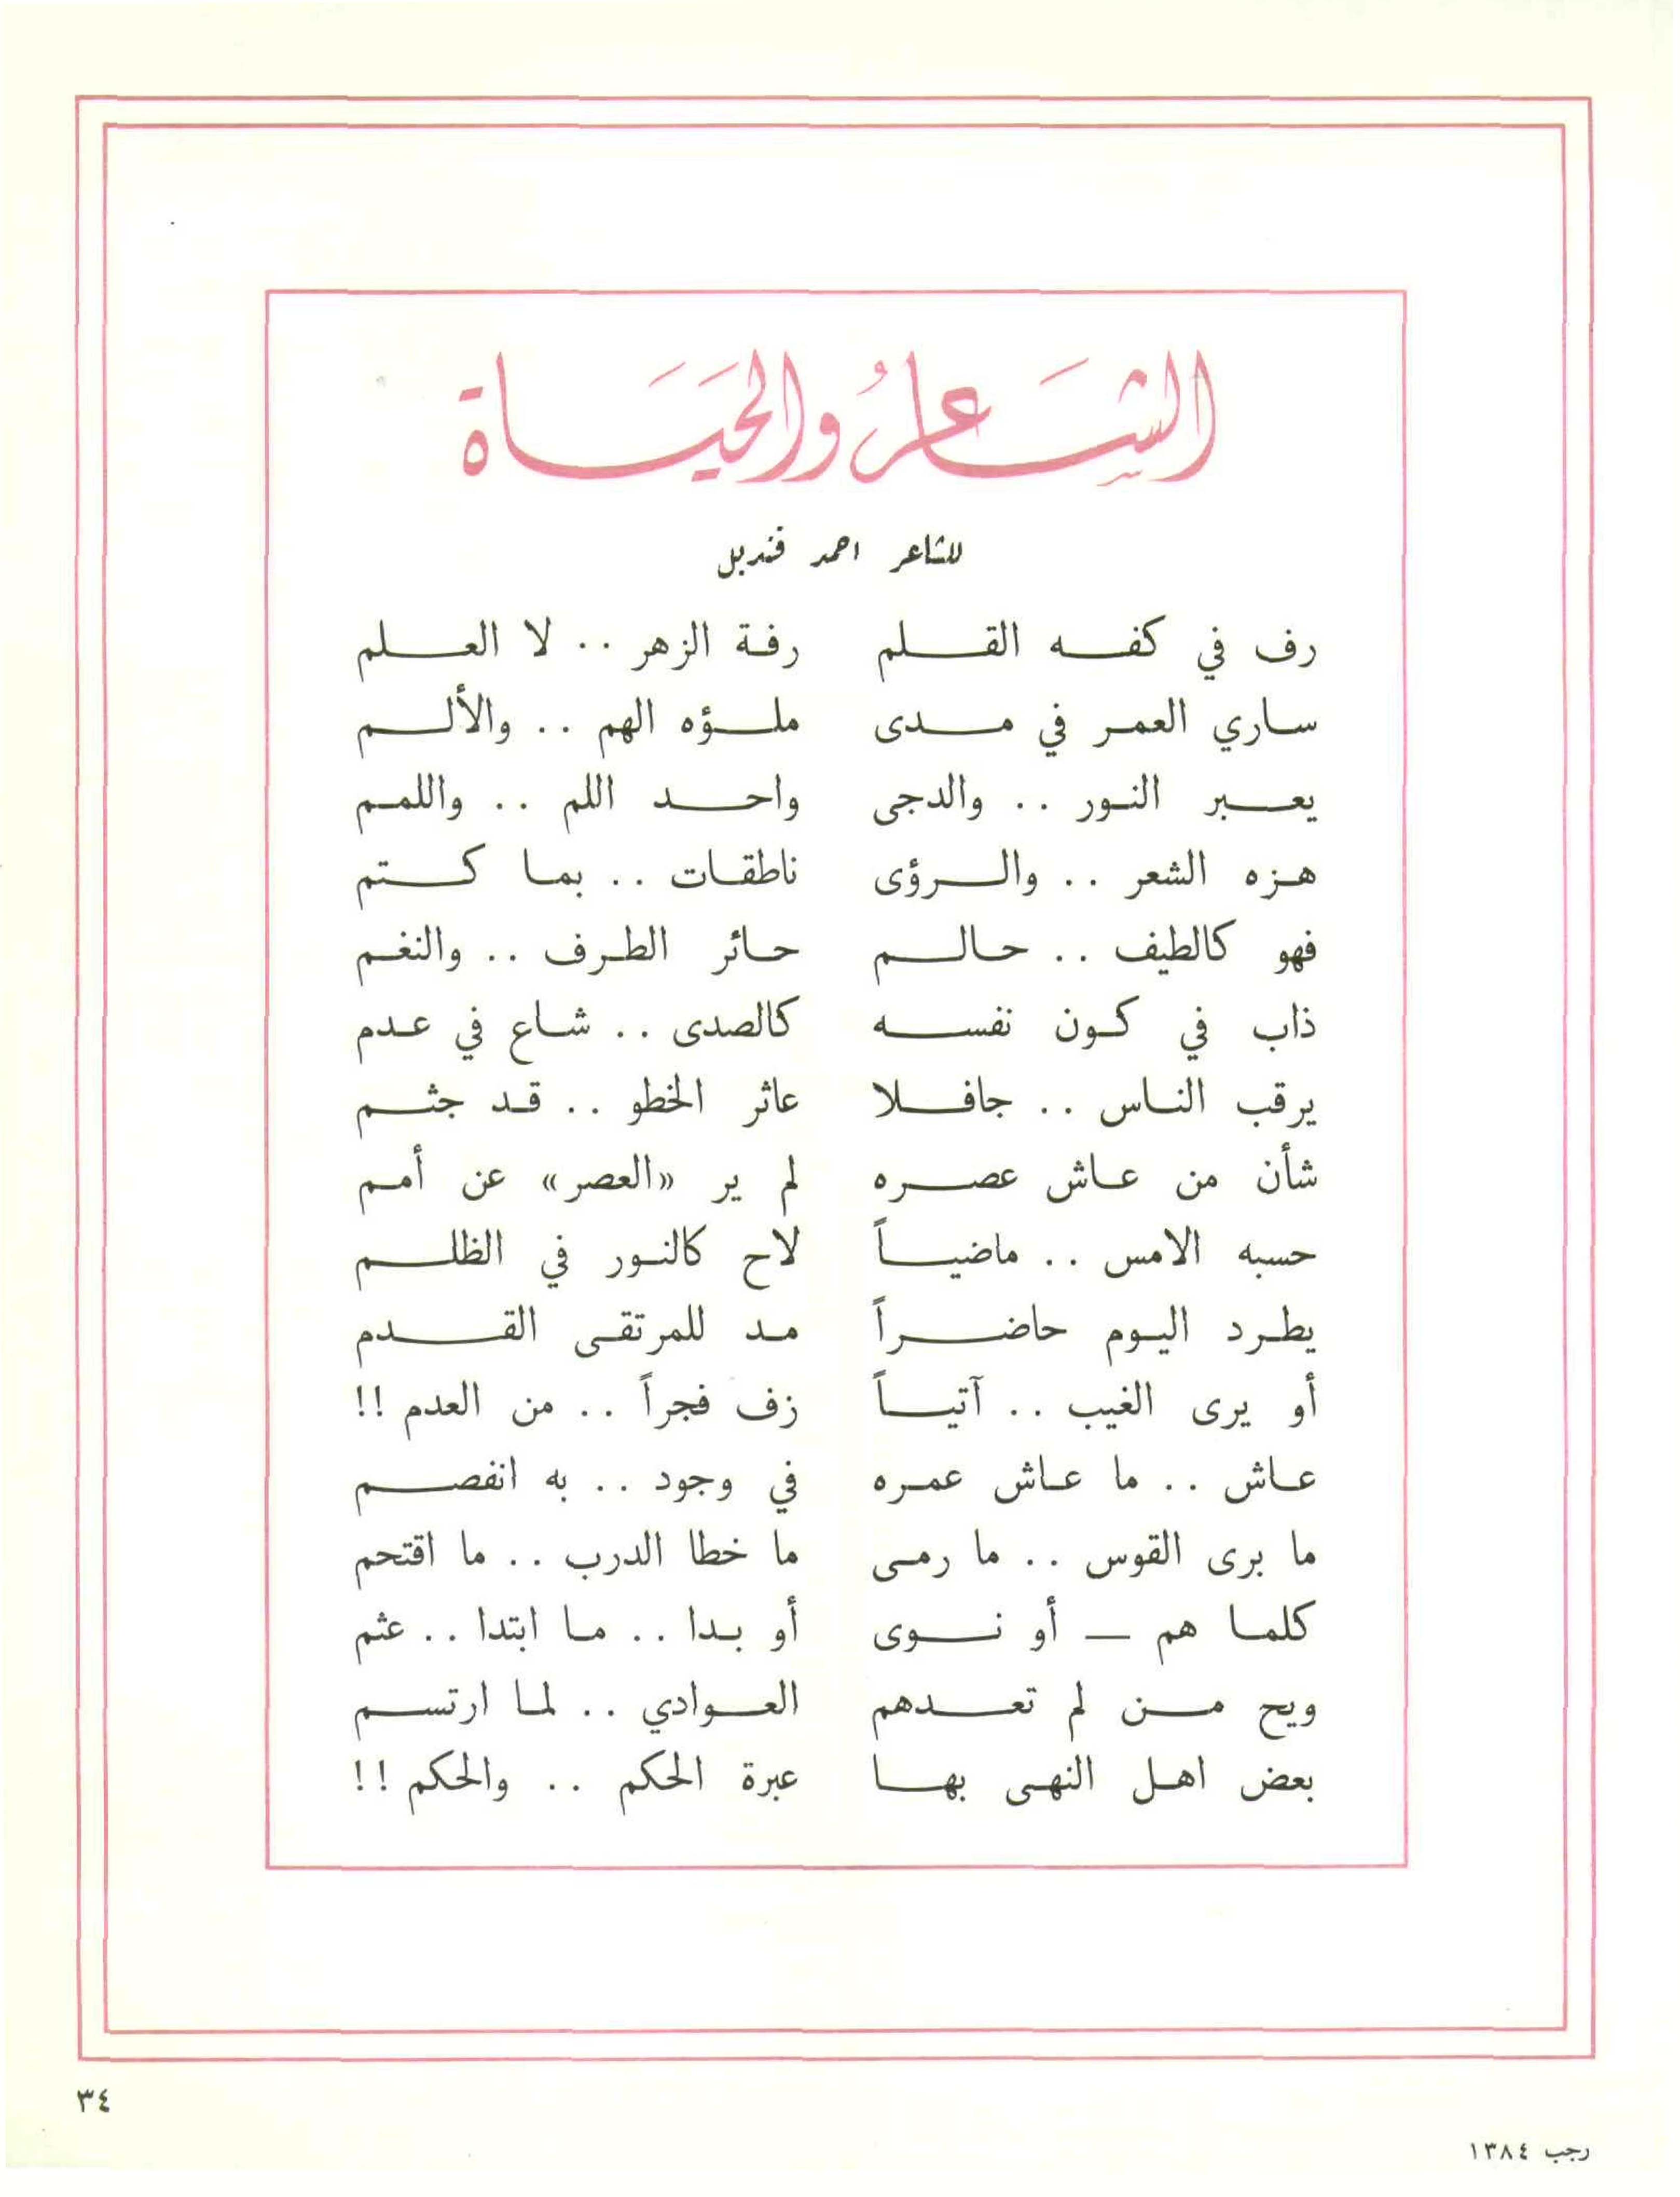 الشاعرُ والحيَاة
للشاعر احمد قنديل
رف في كفه القلم رفة الزهر .. لا العلم
ساري العمر في مدى ملؤه الهم .. والألم
يعبر النور .. والدجى واحد اللم .. واللمم
هزه الشعر .. والرؤى ناطقات .. بما كتم
فهو كالطيف .. حالم حائر الطرف .. والنغم
ذاب في كون نفسه كالصدى .. شاع في عدم
يرقب الناس .. جافلا عاثر الخطو .. قد جثم
شأن من عاش عصره لم ير «العصر» عن أمم
حسبه الامس .. ماضياً لاح كالنور في الظلم
يطرد اليوم حاضراً مد للمرتقى القدم
أو يرى الغيب .. آتياً زف فجراً .. من العدم !!
عاش .. ما عاش عمره في وجود .. به انفصم
ما برى القوس .. ما رمى ما خطا الدرب .. ما اقتحم
كلما هم — أو نوى أو بدا .. ما ابتدا .. عثم
ويح من لم تعدهم العوادي .. لما ارتسم
بعض اهل النهى بها عبرة الحكم .. والحكم !!
٣٤
رجب ١٣٨٤